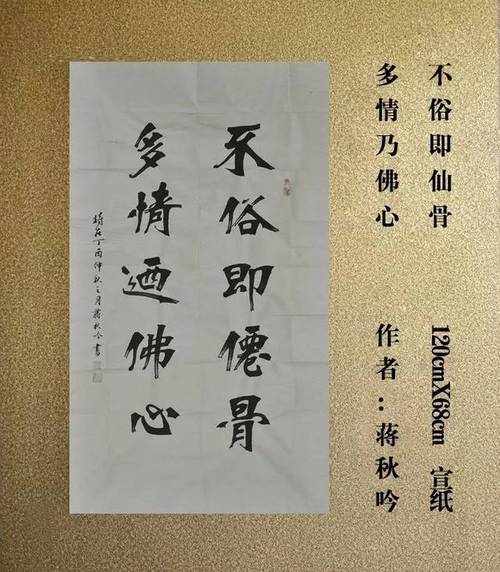 不俗即仙骨
多情乃佛心
120cmX68cm 宣纸
作者：蒋秋吟
不俗即僊骨
多情迺佛心
在丁酉仲秋之月蒋秋吟書